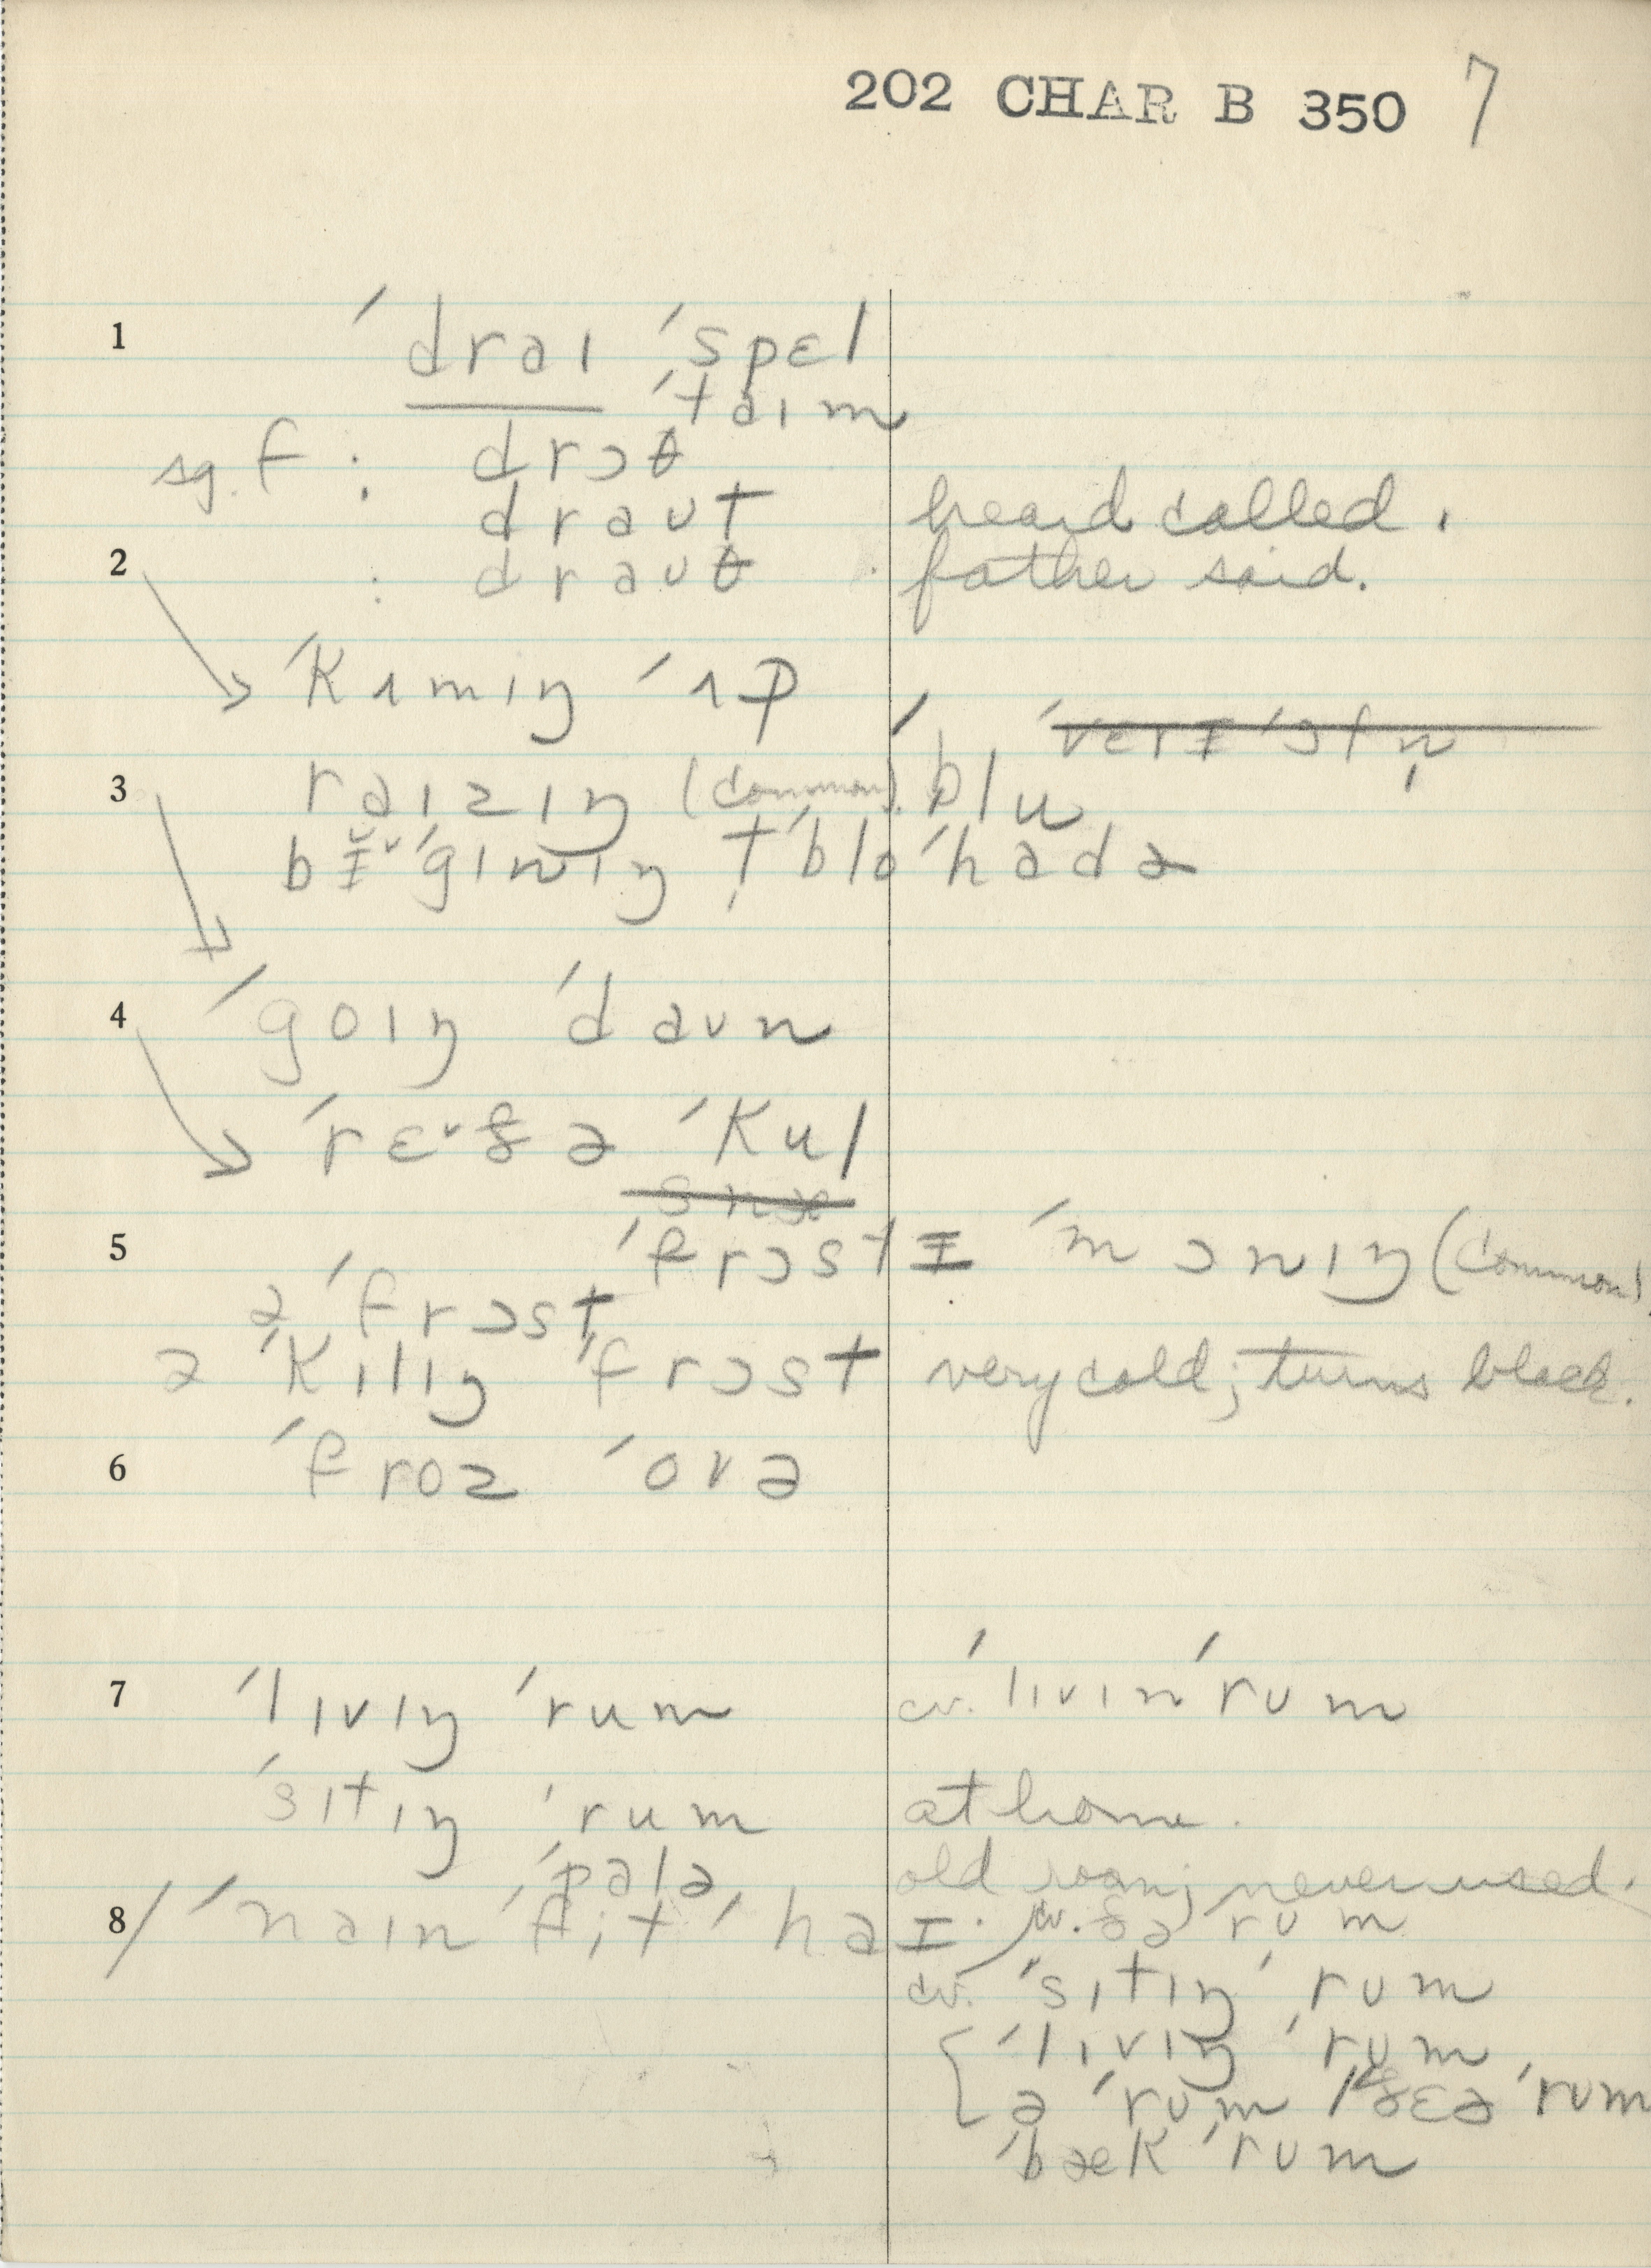 202 CHAR B 350 7
1 ˈdraɪ ˈspɛl
ˈtaɪm
sg. f : drɔθ
draʊt heard called.
2 : draʊθ father said.
ˈkʌmɪŋ ˈʌp
ˈvɛrɪ ˈɔfn̩
3 raɪzɪŋ (common). ˈblu
bɪˈgɪnɪŋ t̩ ˈblo ˈhadə
4 ˈgoɪŋ ˈdaʊn
ˈrɛˑðə ˈkul
5 ˈfrɔstɪ ˈmɔnɪŋ (common)
ə ˈfrɔst
ə ˈkɪlɪŋ ˈfrɔst very cold; turns black.
6 ˈfroz ˈovə
7 ˈlɪvɪŋ ˈrum cv. ˈlɪvɪn ˈrʊm
ˈsɪtɪŋ ˈrum at home.
ˈpalə old room; never used.
8 / ˈnaɪn ˈfit ˈhaɪ. cv. ðə ˈrʊm
cv. ˈsɪtɪŋ ˈrʊm
ˈlɪvɪŋ ˈrʊm
ə ˈrʊm ˈðɛə ˈrʊm
ˈbæk ˈrʊm